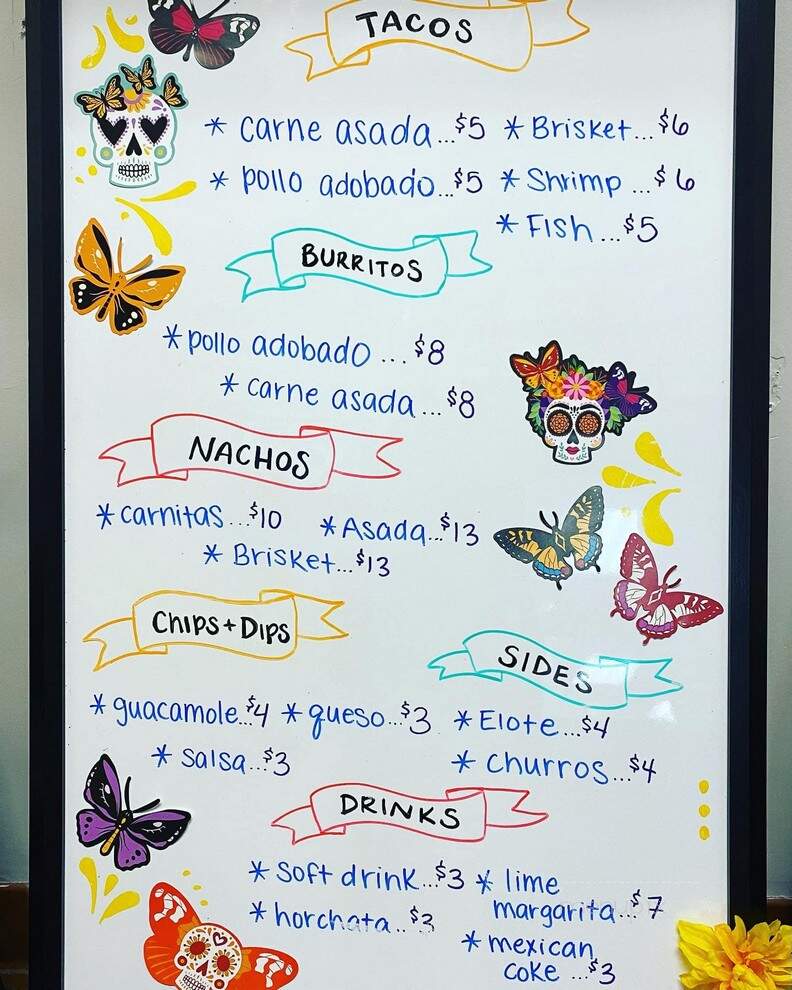 TACOS
* carne asada...$5 * Brisket...$6
* pollo adobado...$5 * Shrimp...$6
* Fish...$5
BURRITOS
* pollo adobado...$8
* carne asada...$8
NACHOS
* carnitas...$10 * Asada...$13
* Brisket...$13
CHIPS + DIPS
* guacamole...$4 * queso...$3
* salsa...$3
SIDES
* Elote...$4
* churros...$4
DRINKS
* soft drink...$3
* horchata...$3
* lime
margarita...$7
* mexican
coke...$3